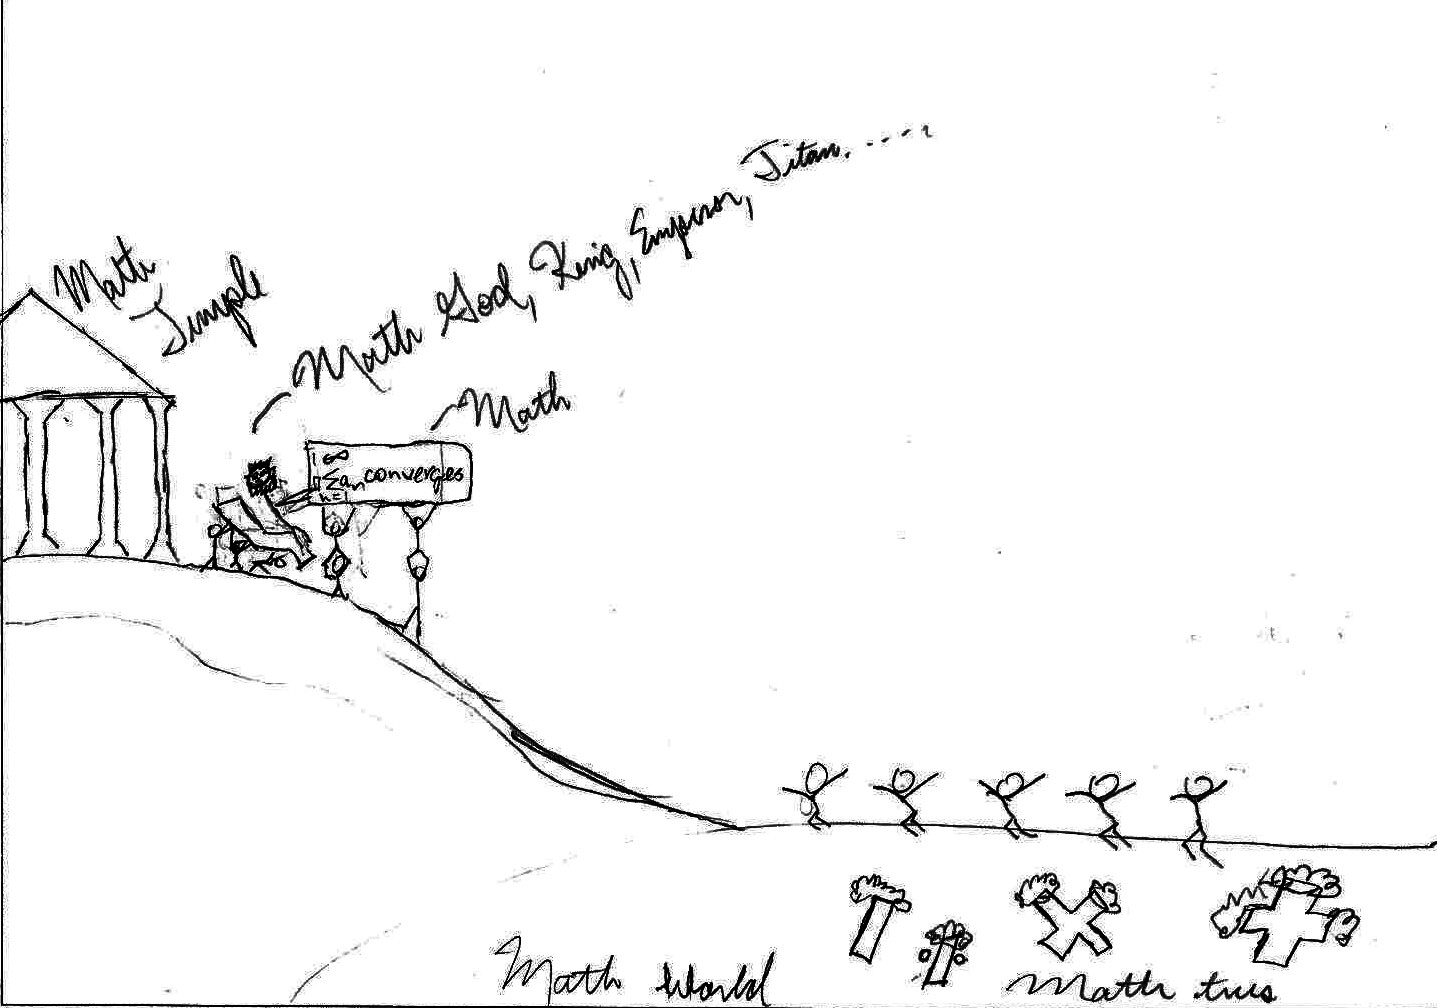 Math
Temple
Math God, King, Emperor, Titan.....
Math
∞
∑ aₙ converges
n=1
Math World
Math trees